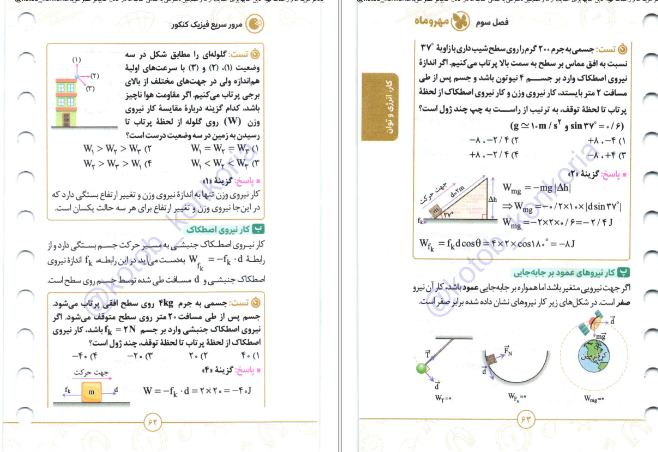 مرور سریع فیزیک کنکور
تست: گلوله‌ای را مطابق شکل در سه
وضعیت (۱)، (۲) و (۳) با سرعت‌های اولیهٔ
هم‌اندازه ولی در جهت‌های مختلف از بالای
برجی پرتاب می‌کنیم. اگر مقاومت هوا ناچیز
باشد، کدام گزینه دربارهٔ مقایسهٔ کار نیروی
وزن (W) روی گلوله از لحظهٔ پرتاب تا
رسیدن به زمین در سه وضعیت درست است؟
(۱)
(۲)
(۳)
۱) W₁ = W₂ = W₃
۲) W₁ > W₂ > W₃
۳) W₁ < W₂ < W₃
۴) W₂ > W₃ > W₁
پاسخ: گزینهٔ «۱»
کار نیروی وزن تنها به اندازهٔ نیروی وزن و تغییر ارتفاع بستگی دارد که
در این‌جا نیروی وزن و تغییر ارتفاع برای هر سه حالت یکسان است.
پ کار نیروی اصطکاک
کار نیروی اصطکاک جنبشی به مسیر حرکت جسم بستگی دارد و از
رابطهٔ W_fk = −f_k d به‌دست می‌آید در این رابطه، f_k اندازهٔ نیروی
اصطکاک جنبشی و d مسافت طی شده توسط جسم روی سطح است.
تست: جسمی به جرم ۴kg روی سطح افقی پرتاب می‌شود.
جسم پس از طی مسافت ۲۰ متر روی سطح متوقف می‌شود. اگر
نیروی اصطکاک جنبشی وارد بر جسم f_k = ۲N باشد، کار نیروی
اصطکاک از لحظهٔ پرتاب تا لحظهٔ توقف، چند ژول است؟
۱) ۴۰ ۲) ۲۰ ۳) −۲۰ ۴) −۴۰
پاسخ: گزینهٔ «۴»
جهت حرکت
f_k m d
W = −f_k · d = ۲ × ۲۰ = −۴۰J
۶۲
فصل سوم مهروماه
کار، انرژی و توان
تست: جسمی به جرم ۲۰۰ گرم را روی سطح شیب‌داری با زاویهٔ ۳۷°
نسبت به افق مماس بر سطح به سمت بالا پرتاب می‌کنیم. اگر اندازهٔ
نیروی اصطکاک وارد بر جسم ۴ نیوتون باشد و جسم پس از طی
مسافت ۲ متر بایستد، کار نیروی وزن و کار نیروی اصطکاک از لحظهٔ
پرتاب تا لحظهٔ توقف، به ترتیب از راست به چپ چند ژول است؟
(g ≃ ۱۰ m/s² و sin۳۷° = ۰/۶)
۱) −۴، +۸
۲) −۲/۴، −۸
۳) +۴، −۸
۴) −۲/۴، +۸
پاسخ: گزینهٔ «۲»
جهت حرکت
d=۲m
Δh
۳۷°
f_k
W_mg = −mg|Δh|
⇒ W_mg = −۰/۲×۱۰×|d sin۳۷°|
W_mg = −۲×۲×۰/۶ = −۲/۴ J
W_fk = f_k d cosθ = ۴×۲×cos۱۸۰° = −۸J
ت کار نیروهای عمود بر جابه‌جایی
اگر جهت نیرویی متغیر باشد اما همواره بر جابه‌جایی عمود باشد، کار آن نیرو
صفر است. در شکل‌های زیر کار نیروهای نشان داده شده برابر صفر است.
T d
F_N d
d mg
W_T = ۰
W_mg = ۰
۶۳
@kotob_konkoria
@kotob_konkoria